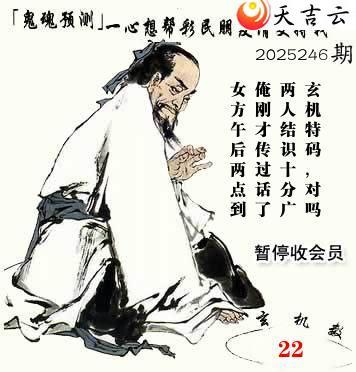 天吉云
「鬼魂预测」一心想帮彩民朋友
2025246期
玄机特码，对吗
两人结识十分广
俺刚才传过话了
女方午后两点到
暂停收会员
玄机数
22